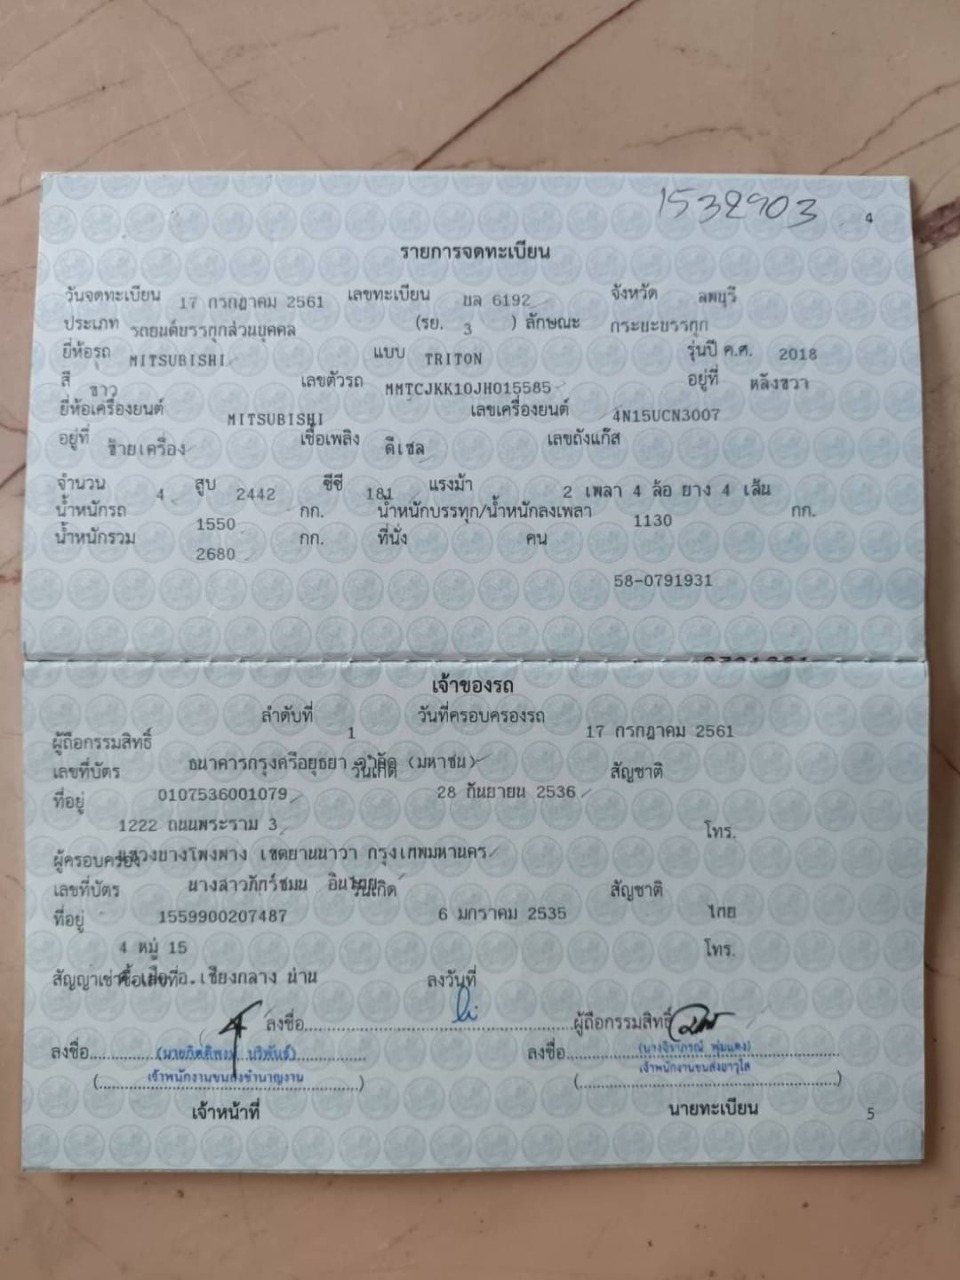 1532903
4
รายการจดทะเบียน
วันจดทะเบียน 17 กรกฎาคม 2561 เลขทะเบียน บล 6192 จังหวัด ลพบุรี
ประเภท รถยนต์บรรทุกส่วนบุคคล (รย. 3 ) ลักษณะ กระบะบรรทุก
ยี่ห้อรถ MITSUBISHI แบบ TRITON รุ่นปี ค.ศ. 2018
สี ขาว เลขตัวรถ MMTCJKK10JH015585 อยู่ที่ หลังขวา
ยี่ห้อเครื่องยนต์ MITSUBISHI เลขเครื่องยนต์ 4N15UCN3007
อยู่ที่ ซ้ายเครื่อง เชื้อเพลิง ดีเซล เลขถังแก๊ส
จำนวน 4 สูบ 2442 ซีซี 181 แรงม้า 2 เพลา 4 ล้อ ยาง 4 เส้น
น้ำหนักรถ 1550 กก. น้ำหนักบรรทุก/น้ำหนักลงเพลา 1130 กก.
น้ำหนักรวม 2680 กก. ที่นั่ง คน
58-0791931
เจ้าของรถ
ลำดับที่ 1 วันที่ครอบครองรถ 17 กรกฎาคม 2561
ผู้ถือกรรมสิทธิ์ ธนาคารกรุงศรีอยุธยา จำกัด (มหาชน)
เลขที่บัตร 0107536001079 วันเกิด 28 กันยายน 2536 สัญชาติ
ที่อยู่ 1222 ถนนพระราม 3 โทร.
แขวงบางโพงพาง เขตยานนาวา กรุงเทพมหานคร
ผู้ครอบครอง นางสาวภัทร์ชมน
เลขที่บัตร 1559900207487 วันเกิด 6 มกราคม 2535 สัญชาติ ไทย
ที่อยู่ 4 หมู่ 15 โทร.
อ.เชียงกลาง น่าน
สัญญาเช่าซื้อเลขที่ ลงวันที่
ลงชื่อ ผู้ถือกรรมสิทธิ์
ลงชื่อ ลงชื่อ
เจ้าพนักงานขนส่งชำนาญงาน เจ้าพนักงานขนส่งอาวุโส
เจ้าหน้าที่ นายทะเบียน
5